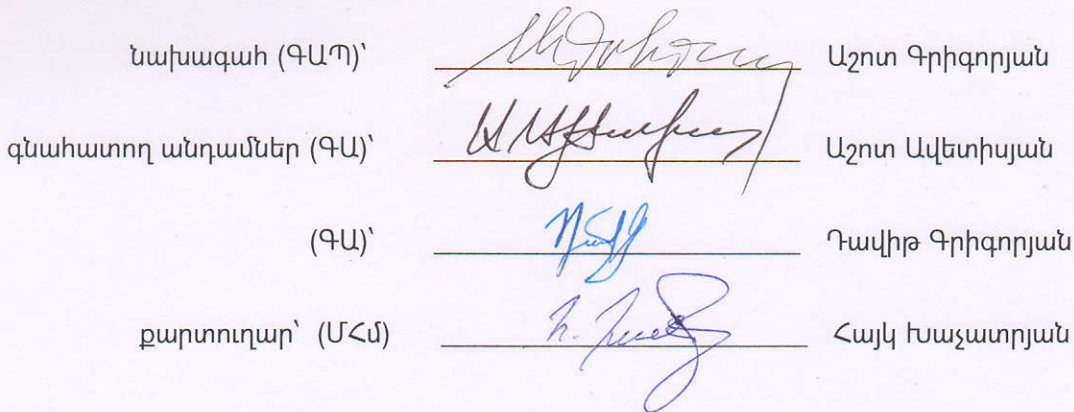 նախագահ (ԳԱՊ)՝ Աշոտ Գրիգորյան
գնահատող անդամներ (ԳԱ)՝ Աշոտ Ավետիսյան
(ԳԱ)՝ Դավիթ Գրիգորյան
քարտուղար՝ (ՄՀմ) Հայկ Խաչատրյան